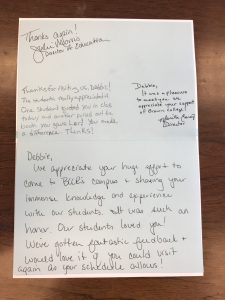 Thanks again!
John Morris
Director of Education
Thanks for visiting us, Debbie!
The students really appreciated
One student quoted you in class
today and another pulled out the
book you gave her! You made
a difference. Thanks!
Debbie,
It was a pleasure
to meet you. We
appreciate your support
of Brown College!
Director
Debbie,
We appreciate your huge effort to
come to BCK's campus + sharing your
immense knowledge and experience
with our students. It was such an
honor. Our students loved you!
We've gotten fantastic feedback +
would love it if you could visit
again as your schedule allows!